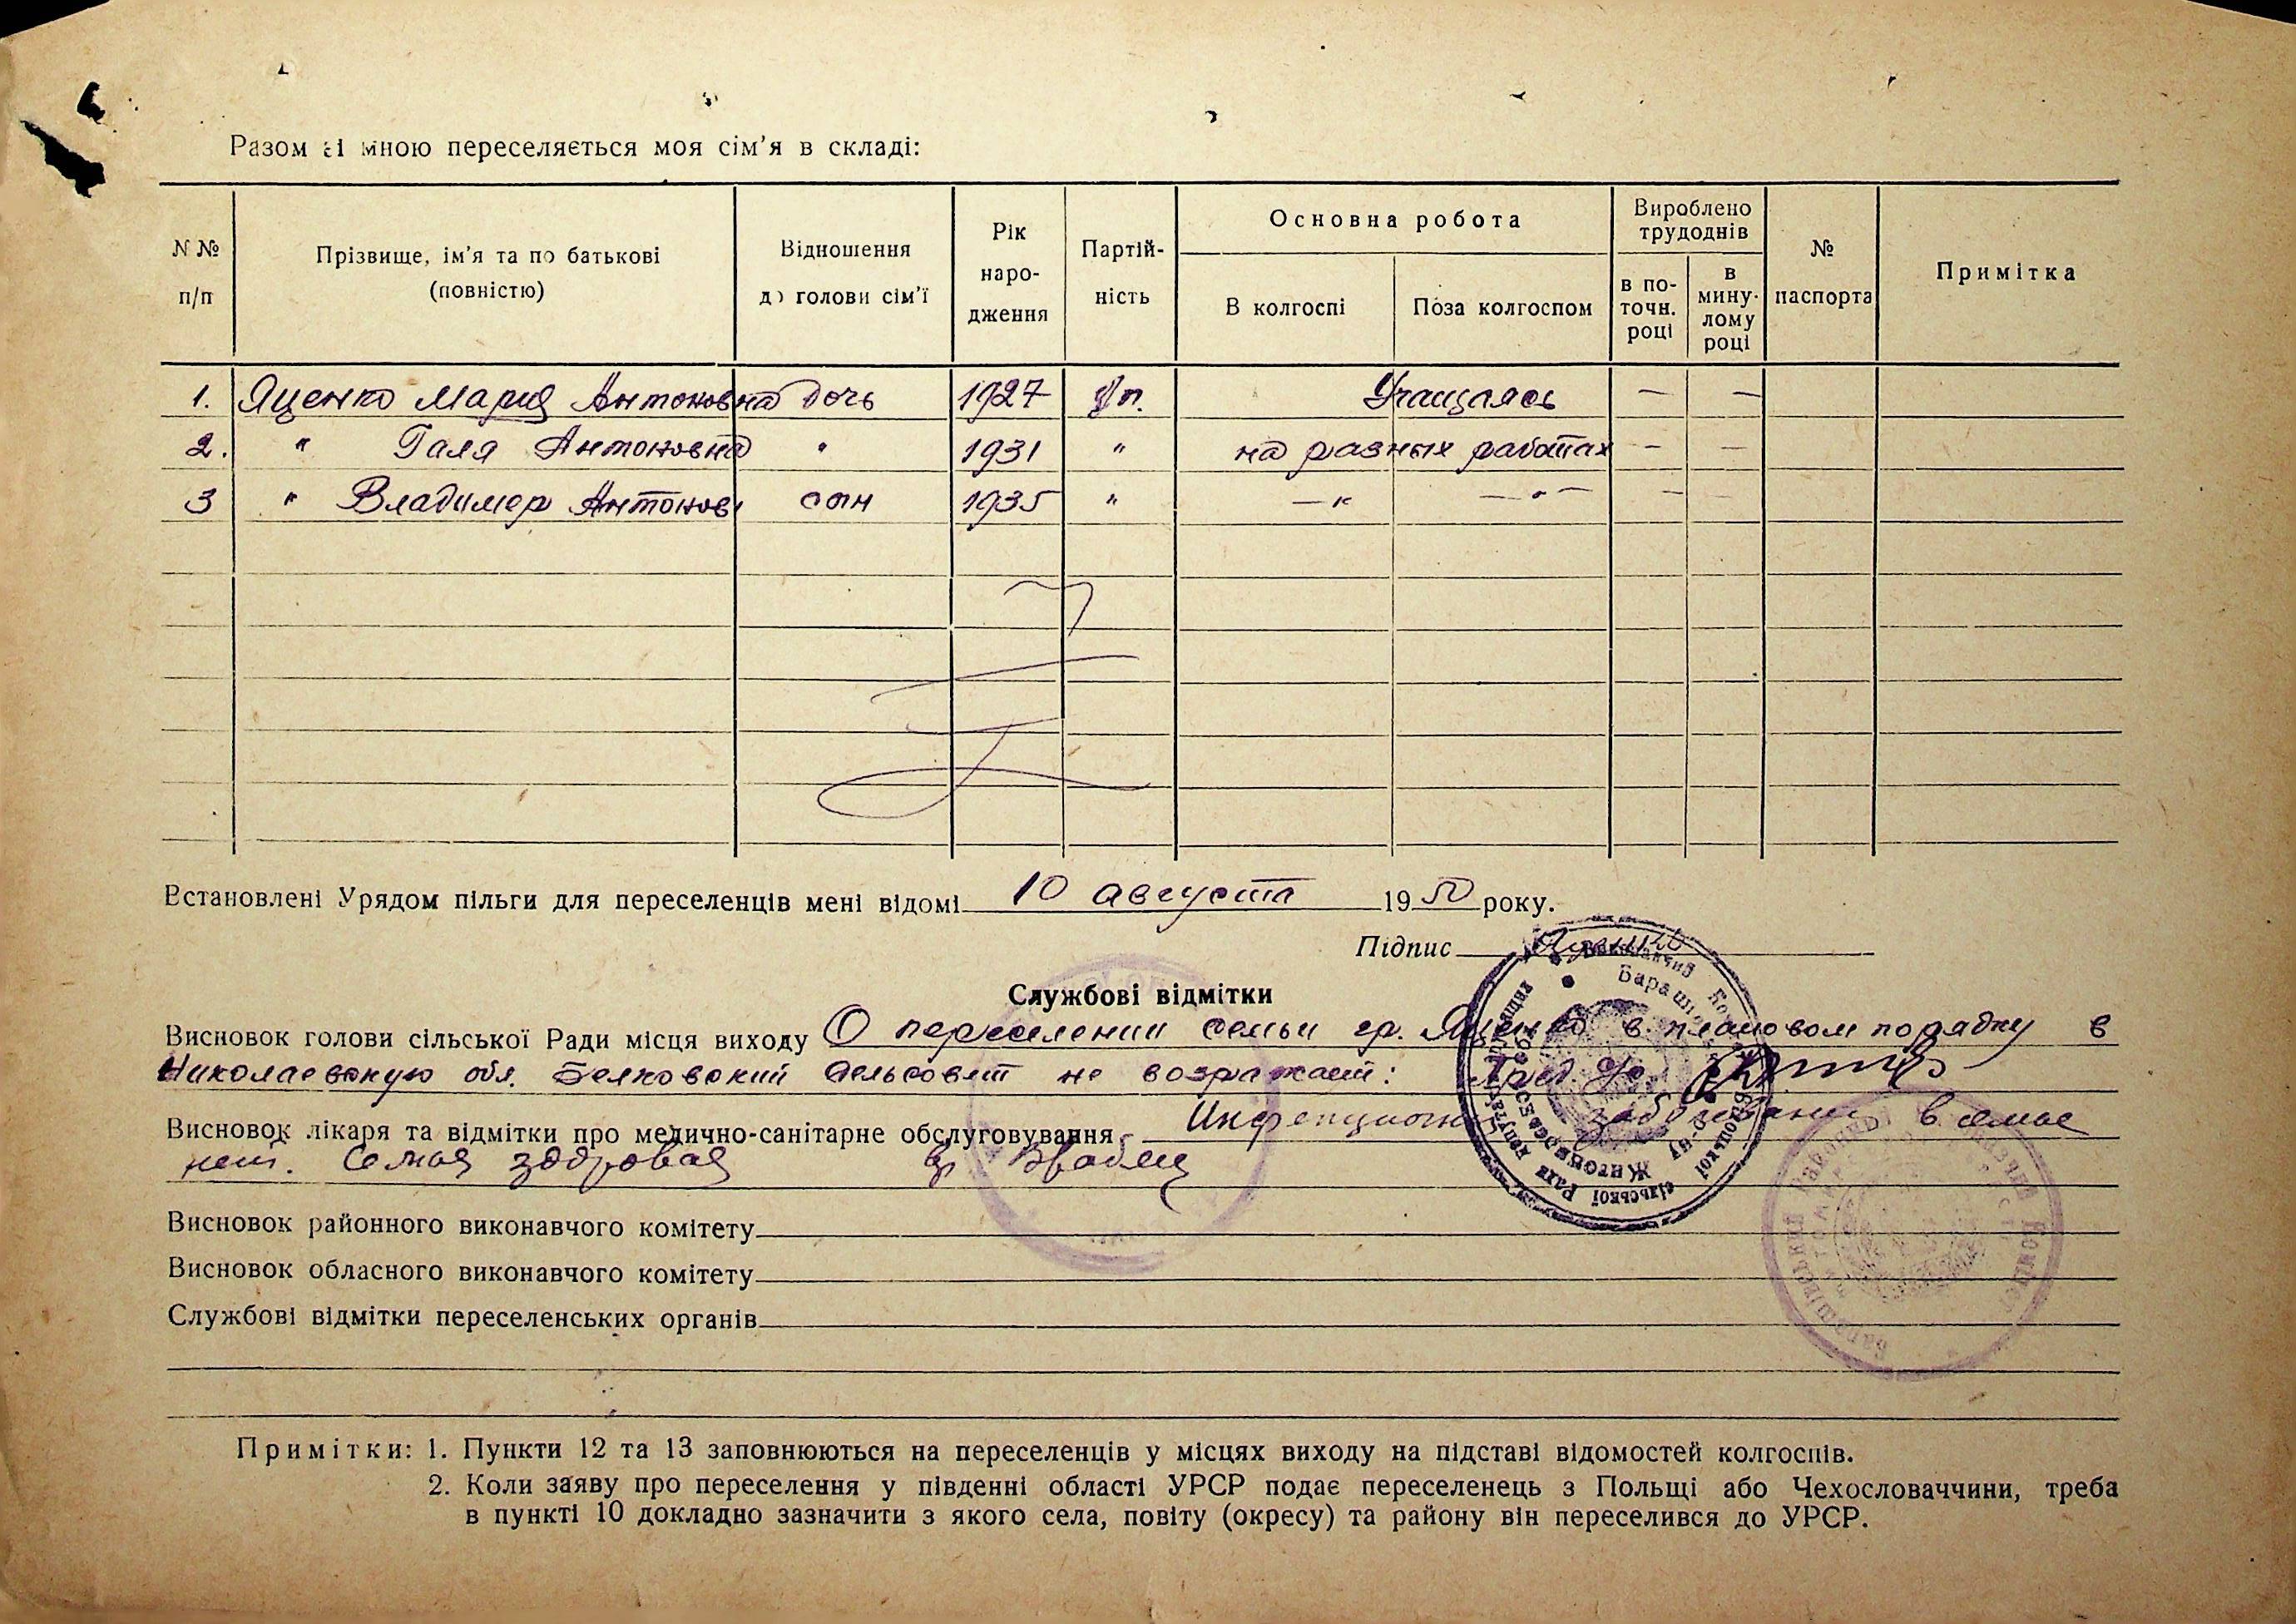 Разом зі мною переселяється моя сім'я в складі:
N №
п/п
Прізвище, ім'я та по батькові
(повністю)
Відношення
до голови сім'ї
Рік
наро-
дження
Партій-
ність
Основна робота
В колгоспі
Поза колгоспом
Вироблено
трудоднів
в по-
точн.
році
в
мину-
лому
році
№
паспорта
Примітка
1. Яценко Мария Антоновна дочь 1927 Учащаясь — —
2. " Галя Антоновна " 1931 " на разных работах — —
3 " Владимер Антонов сын 1935 " —"— —"— — —
Встановлені Урядом пільги для переселенців мені відомі 10 августа 1950 року.
Підпис Яценко
Службові відмітки
Висновок голови сільської Ради місця виходу О переселении семьи гр. Яценко в плановом порядку в
Николаевскую обл. сельсовет не возражает:
Висновок лікаря та відмітки про медично-санітарне обслуговування Инфекционн заболевании в семье
нет. Семья здоровая
Висновок районного виконавчого комітету
Висновок обласного виконавчого комітету
Службові відмітки переселенських органів
Примітки: 1. Пункти 12 та 13 заповнюються на переселенців у місцях виходу на підставі відомостей колгоспів.
2. Коли заяву про переселення у південні області УРСР подає переселенець з Польщі або Чехословаччини, треба
в пункті 10 докладно зазначити з якого села, повіту (окресу) та району він переселився до УРСР.